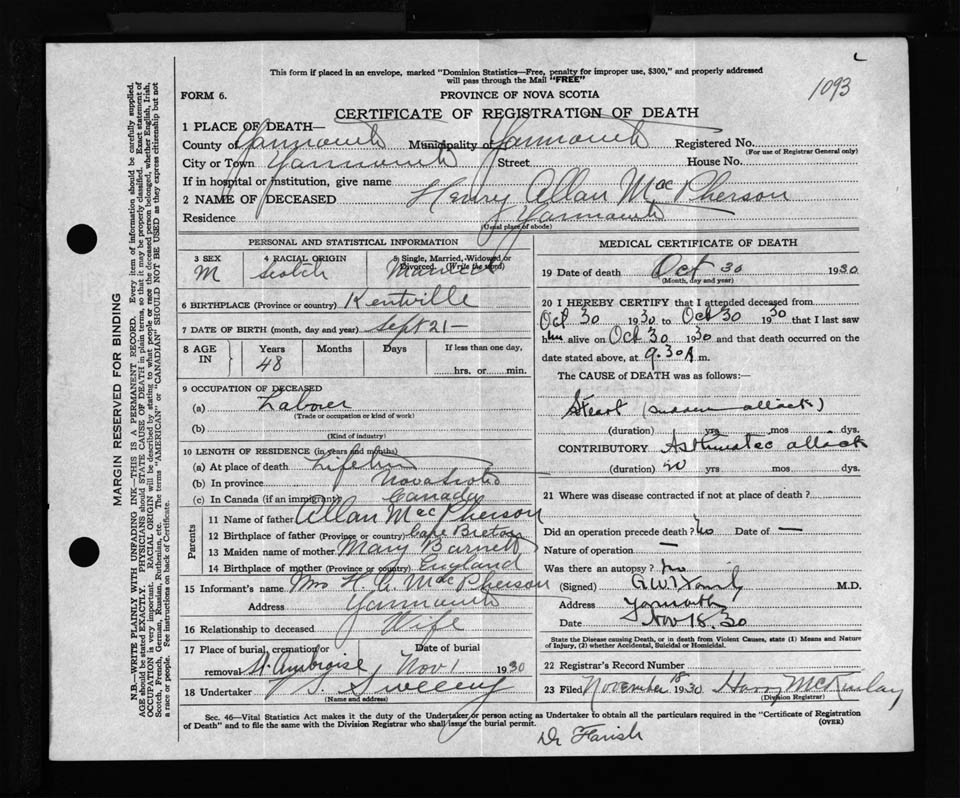 This form if placed in an envelope, marked "Dominion Statistics—Free, penalty for improper use, $300," and properly addressed
will pass through the Mail "FREE"
1093
FORM 6.
PROVINCE OF NOVA SCOTIA
CERTIFICATE OF REGISTRATION OF DEATH
1 PLACE OF DEATH—
County of Yarmouth Municipality of Yarmouth Registered No.
(For use of Registrar General only)
City or Town Yarmouth Street House No.
If in hospital or institution, give name
2 NAME OF DECEASED Henry Allan MacPherson
Residence Yarmouth
(Usual place of abode)
PERSONAL AND STATISTICAL INFORMATION
3 SEX 4 RACIAL ORIGIN 5 Single, Married, Widowed or Divorced. (Write the word)
M Scotch Married
6 BIRTHPLACE (Province or country) Kentville
7 DATE OF BIRTH (month, day and year) Sept 21—
8 AGE IN Years Months Days If less than one day,
48 hrs. or min.
9 OCCUPATION OF DECEASED
(a) Laborer
(Trade or occupation or kind of work)
(b)
(Kind of industry)
10 LENGTH OF RESIDENCE (in years and months)
(a) At place of death Lifetime
(b) In province Nova Scotia
(c) In Canada (if an immigrant) Canada
Parents
11 Name of father Allan MacPherson
12 Birthplace of father (Province or country) Cape Breton
13 Maiden name of mother Mary Barnett
14 Birthplace of mother (Province or country) England
15 Informant's name Mrs H. A. MacPherson
Address Yarmouth
16 Relationship to deceased Wife
17 Place of burial, cremation or removal St. Ambroise Date of burial Nov 1 1930
18 Undertaker V S Sweeny
(Name and address)
MEDICAL CERTIFICATE OF DEATH
19 Date of death Oct 30 1930
(Month, day and year)
20 I HEREBY CERTIFY that I attended deceased from
Oct 30 1930 to Oct 30 1930 that I last saw
him alive on Oct 30 1930 and that death occurred on the
date stated above, at 9.30 A m.
The CAUSE of DEATH was as follows:—
Heart (sudden attack)
(duration) yrs mos dys.
CONTRIBUTORY Asthmatec attack
(duration) 20 yrs mos dys.
21 Where was disease contracted if not at place of death?
Did an operation precede death? No Date of —
Nature of operation —
Was there an autopsy? No
(Signed) M.D.
Address Yarmouth
Date Nov 18.30
State the Disease causing Death, or in death from Violent Causes, state (1) Means and Nature
of Injury, (2) whether Accidental, Suicidal or Homicidal.
22 Registrar's Record Number
23 Filed November 18 1930 Harry McKinlay
(Division Registrar)
Sec. 46—Vital Statistics Act makes it the duty of the Undertaker or person acting as Undertaker to obtain all the particulars required in the "Certificate of Registration
of Death" and to file the same with the Division Registrar who shall issue the burial permit. (OVER)
Dr Farish
MARGIN RESERVED FOR BINDING
N.B.—WRITE PLAINLY WITH UNFADING INK—THIS IS A PERMANENT RECORD. Every item of information should be carefully supplied.
AGE should be stated EXACTLY. PHYSICIANS should STATE CAUSE OF DEATH in plain terms, so that it may be properly classified. Exact statement of
OCCUPATION is very important. RACIAL ORIGIN will be described by stating to what people or race the deceased person belonged, whether English, Irish,
Scotch, French, German, Russian, Ruthenian, etc. The terms "AMERICAN" or "CANADIAN" SHOULD NOT BE USED as they express citizenship but not
a race or people. See instructions on back of Certificate.